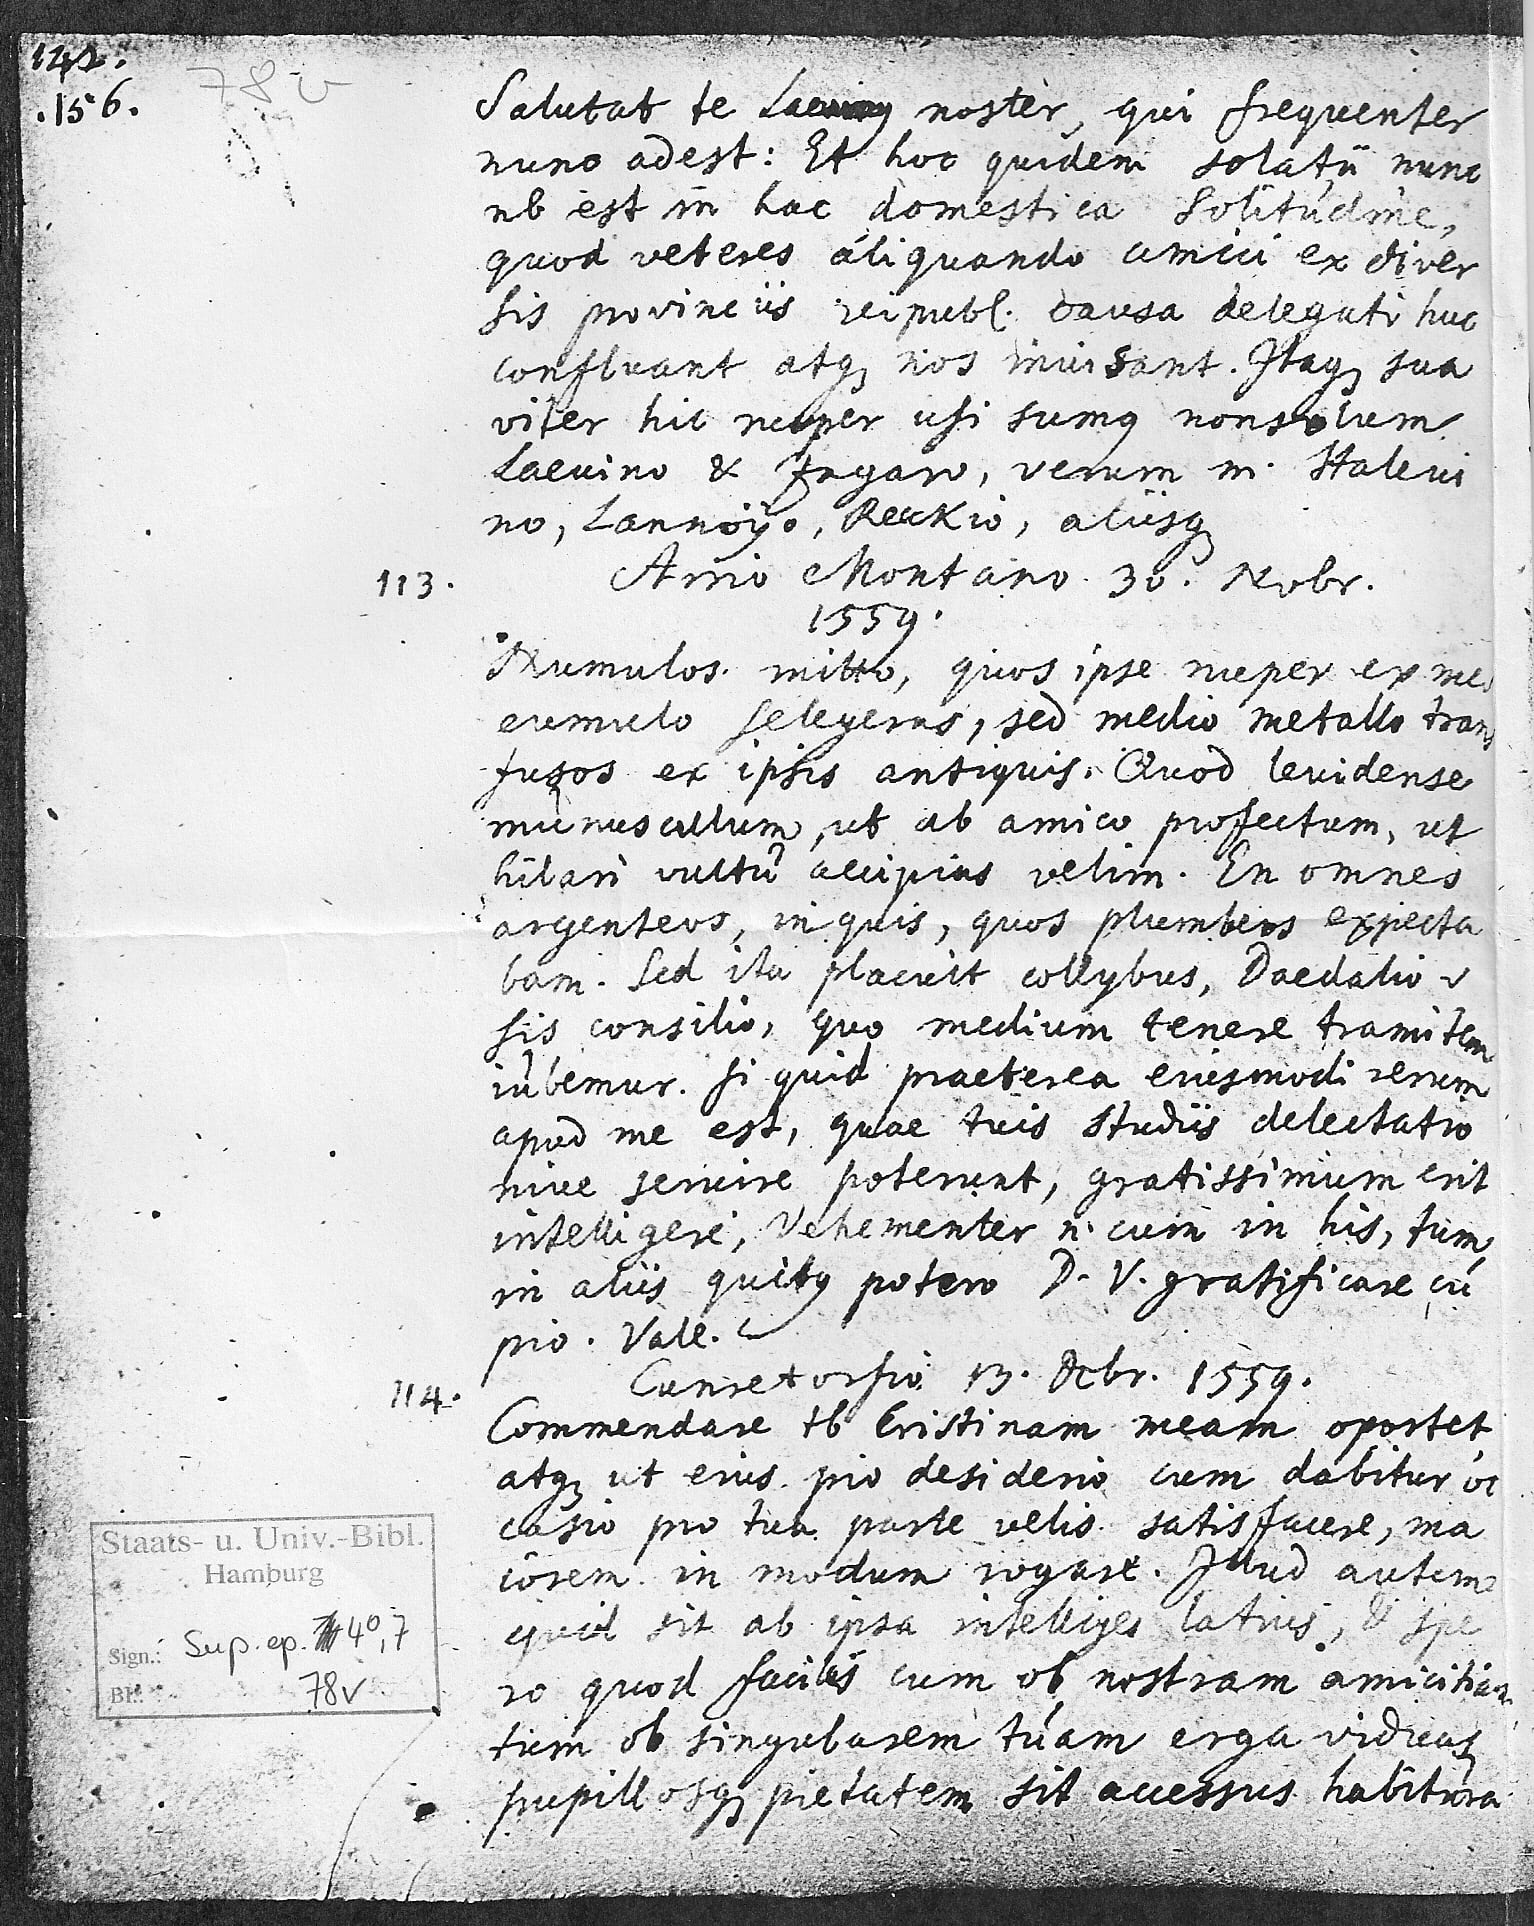 142.
156.
78v
Salutat te Laeuinus noster, qui frequenter
nunc adest: Et hoc quidem solatii nunc
nb est in hac domestica solitudine,
quod veteres aliquando amici ex diver
sis provinciis reipubl. causa delegati huc
confluant atq; nos inuisant. Itaq; sua
viter hic nuper usi sumq nonsolum
Laeuino & Fngaro, verum m. Staleui
no, Lannoÿo, Reckio, aliisq
113. Arrio Montano. 30. Nobr.
1559.
Numulos mitto, quos ipse nuper ex meo
cumulo selegeras, sed medio metallo trans
fusos ex ipsis antiquis. Quod leuidense
munuscullum, ut ab amico profectum, ut
hilari vultu accipias velim. En omnes
argenteos, inquis, quos plumbeos expecta
bam. Sed ita placuit collybus, Daedalio
sis consilio, quo medium tenere tramitem
iubemur. si quid praeterea eiusmodi rerum
apud me est, quae tuis studiis delectatio
niue seruire poterunt, gratissimum erit
intelligere, Vehementer n. cum in his, tum
in aliis quibq potero D. V. gratificare cu
pio. Vale.
114. Cunretorfio 13. Dcbr. 1559.
Commendare tb Cristinam meam oportet
atq; ut eius pio desiderio cum dabitur oc
casio pro tua parte velis satisfacere, ma
iorem in modum rogare. Illud autem
quid sit ab ipsa intelliges latius, & spe
ro quod facies cum ob nostram amicitiam
tum ob singularem tuam erga viduas
pupillosq; pietatem sit accessus habitura
Staats- u. Univ.-Bibl.
Hamburg
Sign.: Sup. ep. 4°, 7
Bl.: 78v